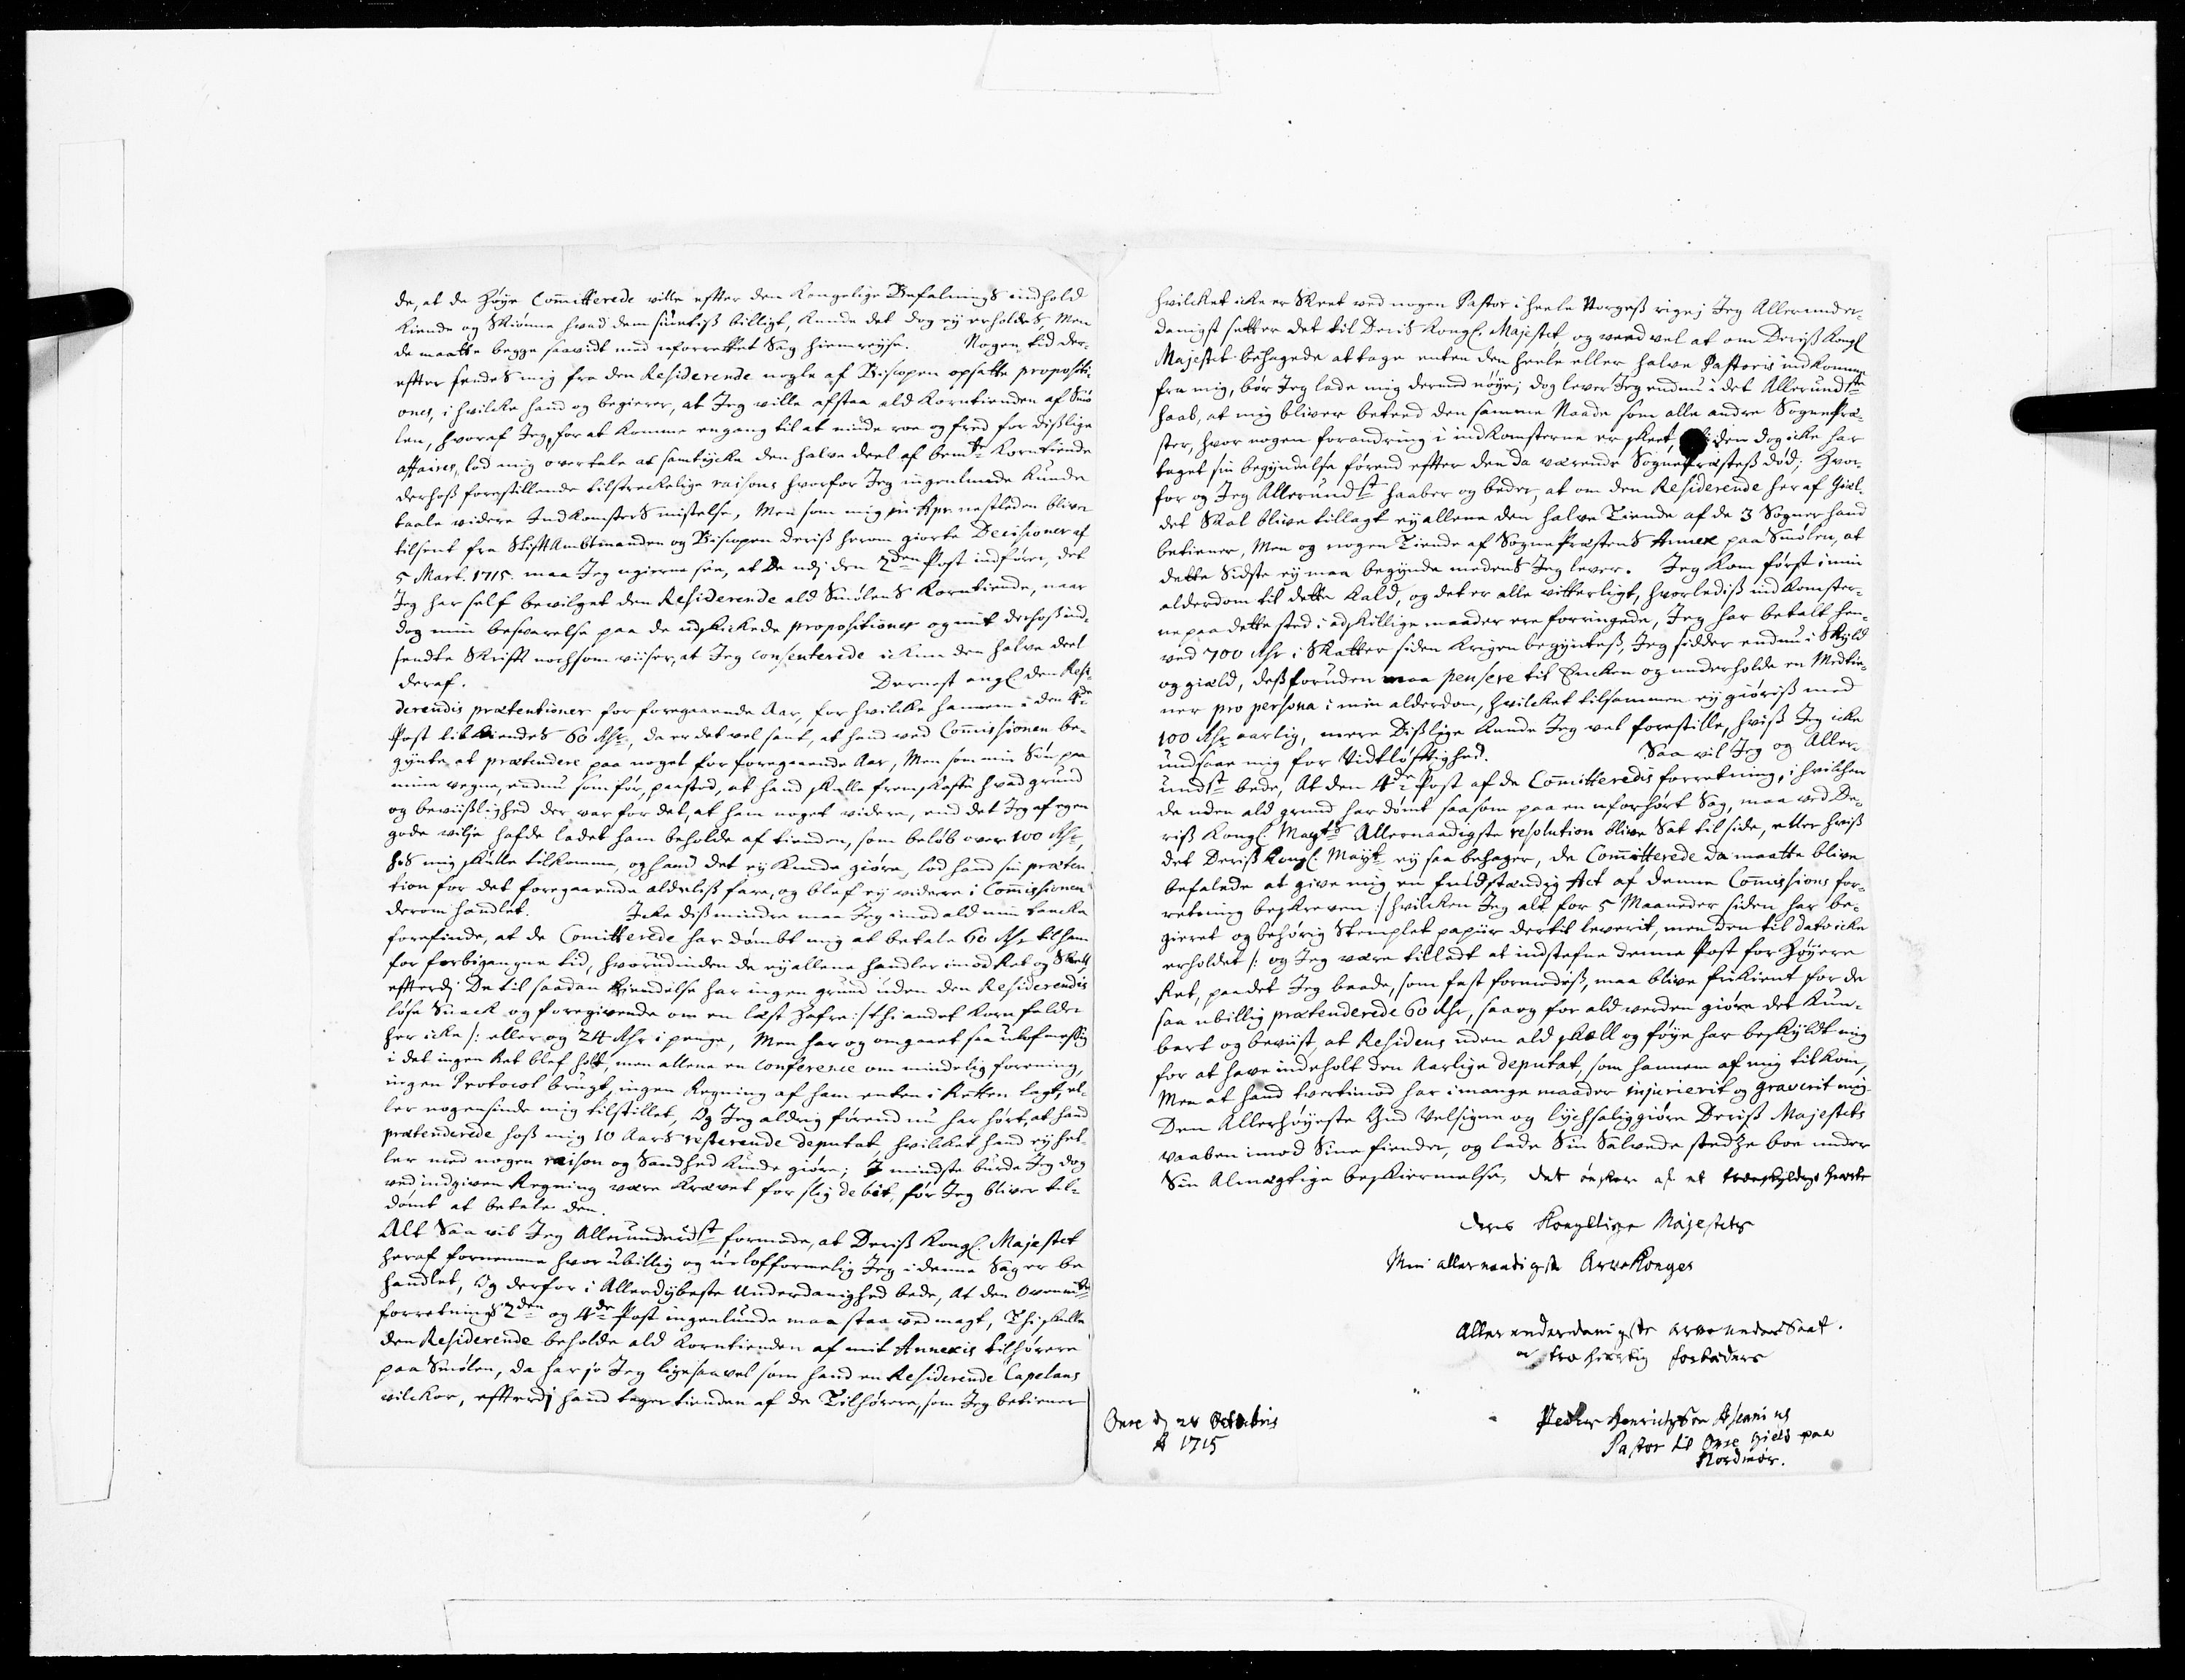 de, at de Høye Com̄itterede ville efter den Kongelige Befalnings indhold
kiende og Skiønne hvad dem siuntiß billigt, kunde det dog ey erholdes, Men
de maatte begge saavidt med uforrettet Sag hiemreyse. Nogen tid der-
efter sendes mig fra den Residerende nogle af Biscopen opsatte propositi-
ones, i hvilcke hand og begierer, at Jeg ville afstaa ald Korntienden af Smø-
len, hvoraf Jeg, for at komme engang til at niude roe og fred for dißlige
affaires, lod mig overtale at samtycke den halve deel af bemte Korntiende
derhoß forestillende tilstreckelige raisons hvorfor Jeg ingenlunde kunde
taale videre Indkomsters mistelse, Men som mig in Apr. nestleden bliver
tilsent fra StifftAmbtmanden og Biscopen deriß herom giorte Decisioner af
5 Mart. 1715. maa Jeg ugierne see, at De udj den 2den Post indfører, det
Jeg har self bevilget den Residerende ald Smølens Korntiende, naar
dog min besvarelse paa de udskickede propositioner og mit derhoß ind-
sendte Skrifft nochsom viiser, at Jeg consenterede ickun den halve deel
deraf. Dernest angl. den Resi-
derendis prætentioner for foregaaende Aar, for hvilcke hannem i den 4de
Post tilkiendes 60 Rdr, da er det vel sant, at hand ved Com̄issionen be-
gynte at prætendere paa noget for foregaaende Aar, Men som min Søn paa
mine vegne, endnu som før, paastod, at hand skulle fremskaffe hvad grund
og bevißlighed der var for det, at ham noget videre, end det Jeg af egen
gode vilje hafde ladet ham beholde af tienden, som beløb over 100 Rdr,
hos mig skulle tilkomme, og hand det ey kunde giøre, lod hand sin præten-
tion for det foregaaende aldeliß fare, og blef ey videre i Com̄issionen
derom handlet. Icke diß mindre maa Jeg imod ald min tancke
forefinde, at de Com̄itterede har dømbt mig at betale 60 Rdr til ham
for forbigangne tid, hvorudinden de ey allene handler imod Ret og Skiell,
efterdj De til saadan Kiendelse har ingen grund uden den Residerendis
løse Snack og foregivende om en læst Hafre :/ thi andet Korn falder
her icke /: eller og 24 Rdr i penge, Men har og omgaaet saa ulofmessig
i det ingen Ret blef holt, men allene en conference om mindelig forening,
ingen Protocol brugt, ingen Regning af ham enten i Retten lagt, el-
ler nogensinde mig tilstillet, Og Jeg aldrig førend nu har hørt, at hand
prætenderede hoß mig 10 Aars resterende deputat, hvilcket hand ey hel-
ler med nogen raison og Sandhed kunde giøre; I mindste burde Jeg dog
ved indgiven Regning være Krævet for slig debit, før Jeg bliver til-
dømt at betale den.
Alt Saa vil Jeg Allerunderdst formode, at Deriß Kongl. Majestet
heraf fornemme hvor ubillig og ulofformelig Jeg i denne Sag er be-
handlet, Og derfor i Allerdybeste Underdanighed bede, At den Ovenmte
forretnings 2den og 4de Post ingenlunde maa staa ved magt, Thi skulle
den Residerende beholde ald Korntienden af mit Annexis tilhørere
paa Smølen, da har jo Jeg ligesaavel som hand en Residerende Capelans
vilckor, efterdj hand tager tienden af de Tilhørere, som Jeg betiener
hvilcket icke er Skeet ved nogen Pastor i heele Norgeß rige; Jeg Allerunder-
danigst setter det til Deris Kongl. Majestet, og veed vel at om Deriß Kongl.
Majestet behagede at tage enten den heele eller halve Pastoris indkomme
fra mig, bør Jeg lade mig dermed nøye; dog lever Jeg endnu i det Allerundste
haab, at mig bliver beteed den samme Naade som alle andre SognePræ-
ster, hvor nogen forandring i indkomsterne er skeet, den dog icke har
taget sin begyndelse førend efter den da værende SognePræsteß død; Hvor-
for og Jeg Allerundst haaber og beder, at om den Residerende her af Giel-
det Skal blive tillagt ey allene den halve Tiende af de 3 Sogner hand
betiener, Men og nogen Tiende af SognePræstens Annex paa Smølen, at
dette Sidste ey maa begynde medens Jeg lever. Jeg kom først i min
alderdom til dette Kald, og det er alle vitterligt, hvorlediß indkomster-
ne paa dette sted i adskillige maader ere forringede, Jeg har betalt hen-
ved 700 Rdr i Skatter siden Krigen begyntes, Jeg sidder endnu i Skyld
og giæld, deßforuden maa pensere til Encken og underholde en Medtie-
ner pro persona i min alderdom, hvilcket tilsammen ey giøriß med
100 Rdr aarlig, mere Dißlige kunde Jeg vel forestille, hviß Jeg icke
undsaae mig for Vidtløftighed. Saa vil Jeg og Aller-
undst bede, At den 4de Post af de Com̄itteredis forretning, i hvilchen
de uden ald grund har dømt saasom paa en uforhørt Sag, maa ved De-
riß Kongl. Mayts Allernaadigste resolution blive Sat til side, eller hviß
det Deriß Kongl. Mayt ey saa behager, de Com̄itterede da maatte blive
befalede at give mig en fuldstændig Act af denne Com̄issions for-
retning beskreven :/ hvilcken Jeg alt for 5 Maaneder siden har be-
gieret og behørig Stemplet papiir dertil leverit, men den til dato icke
erholdet /: og Jeg være tilladt at indstefne denne Post for Høyere
Ret, paa det Jeg baade, som fast formodes, maa blive frikient for de
saa ubillig prætenderede 60 Rdr, saa og for ald verden giøre det kun-
bart og beviist, at Residens uden ald skiell og føye har beskyldt mig
for at have indeholt den Aarlige deputat, som hannem af mig tilkom,
Men at hand tvertimod har i mange maader injurierit og graverit mig
Den Allerhøyeste Gud Velsigne og lychsaliggiøre Deriß Majestets
vaaben imod Sine fiender, og lade Sin Salvede stedze boe under
Sin Almegtige beskiermelse, det ønsker af et troeskyldigt hierte
Deris Kongelige Majestets
Min allernaadigste ArveKonges
Allerunderdanigste arveunderSaat.
oc trohiertig forbedere
Peder Henrichsøn
Pastor til Øure Gield paa
Nordmør.
Øure d 24 Octobris
A 1715